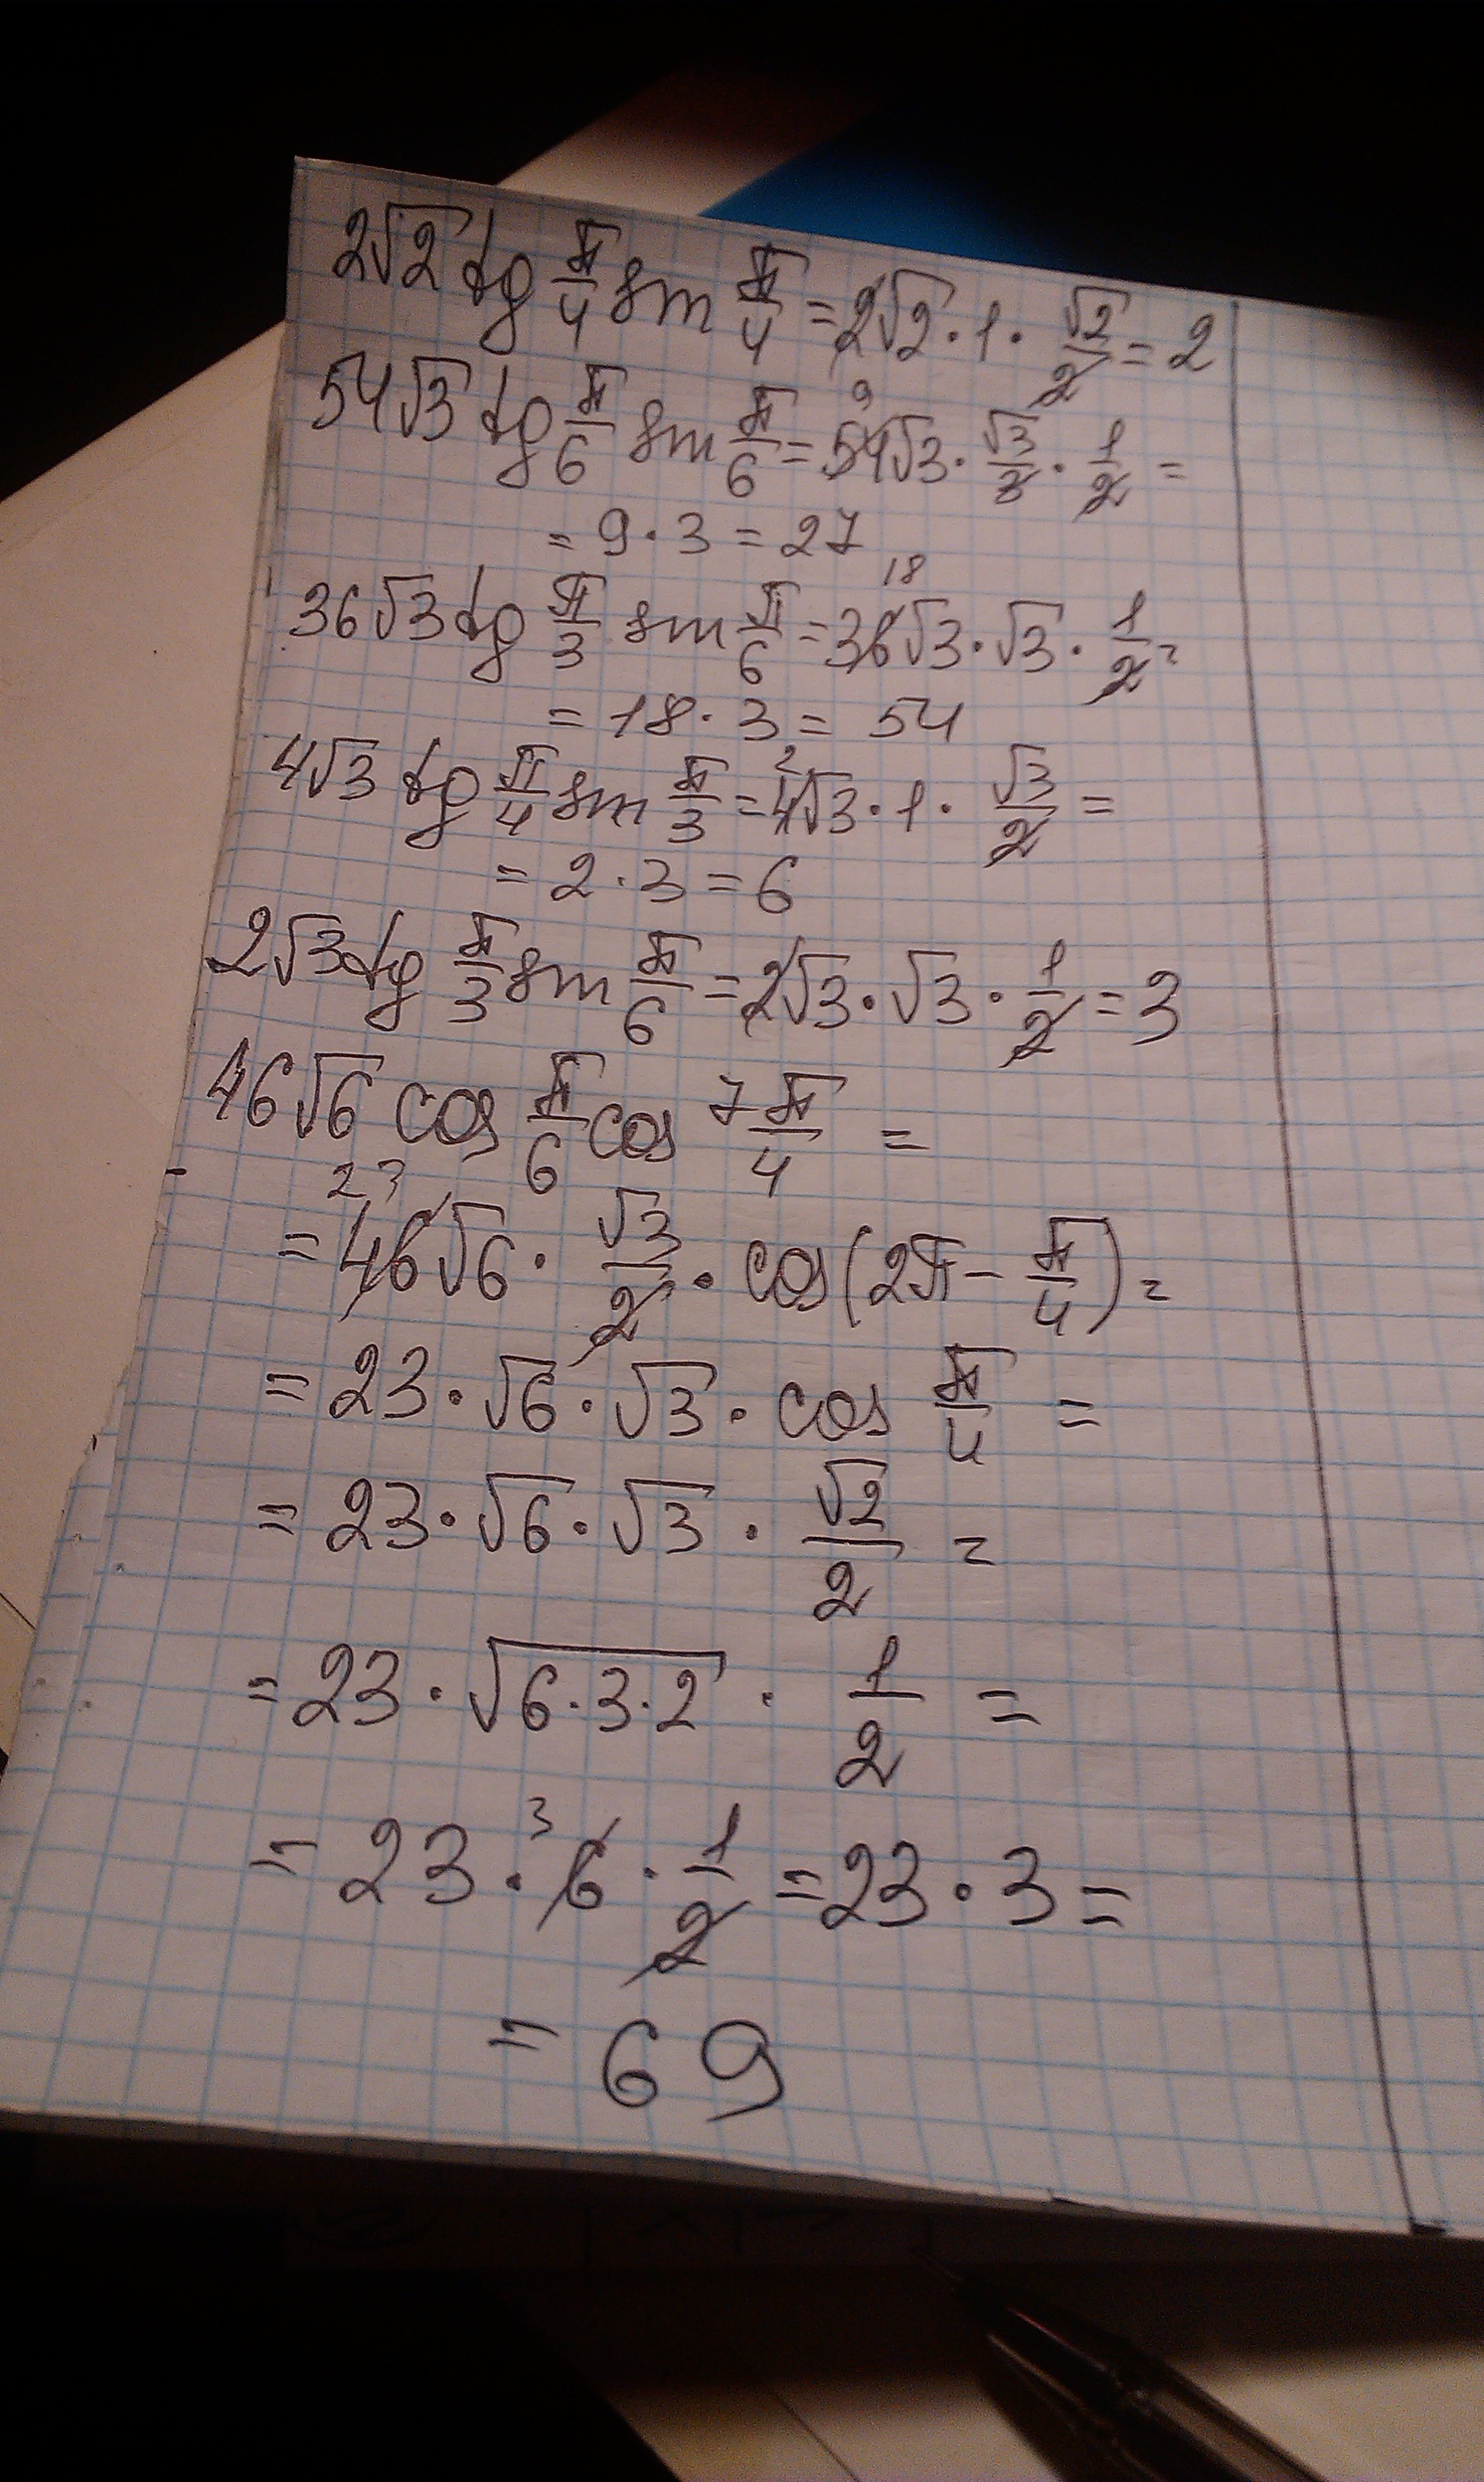 2√2 tg π/4 sin π/4 = 2√2 · 1 · √2/2 = 2
54√3 tg π/6 sin π/6 = 54√3 · √3/3 · 1/2 =
9
= 9 · 3 = 27
36√3 tg π/3 sin π/6 = 36√3 · √3 · 1/2 =
18
= 18 · 3 = 54
4√3 tg π/4 sin π/3 = 4√3 · 1 · √3/2 =
2
= 2 · 3 = 6
2√3 tg π/3 sin π/6 = 2√3 · √3 · 1/2 = 3
46√6 cos π/6 cos 7π/4 =
23
= 46√6 · √3/2 · cos(2π - π/4) =
= 23 · √6 · √3 · cos π/4 =
= 23 · √6 · √3 · √2/2 =
= 23 · √(6·3·2) · 1/2 =
3
= 23 · 6 · 1/2 = 23 · 3 =
= 69